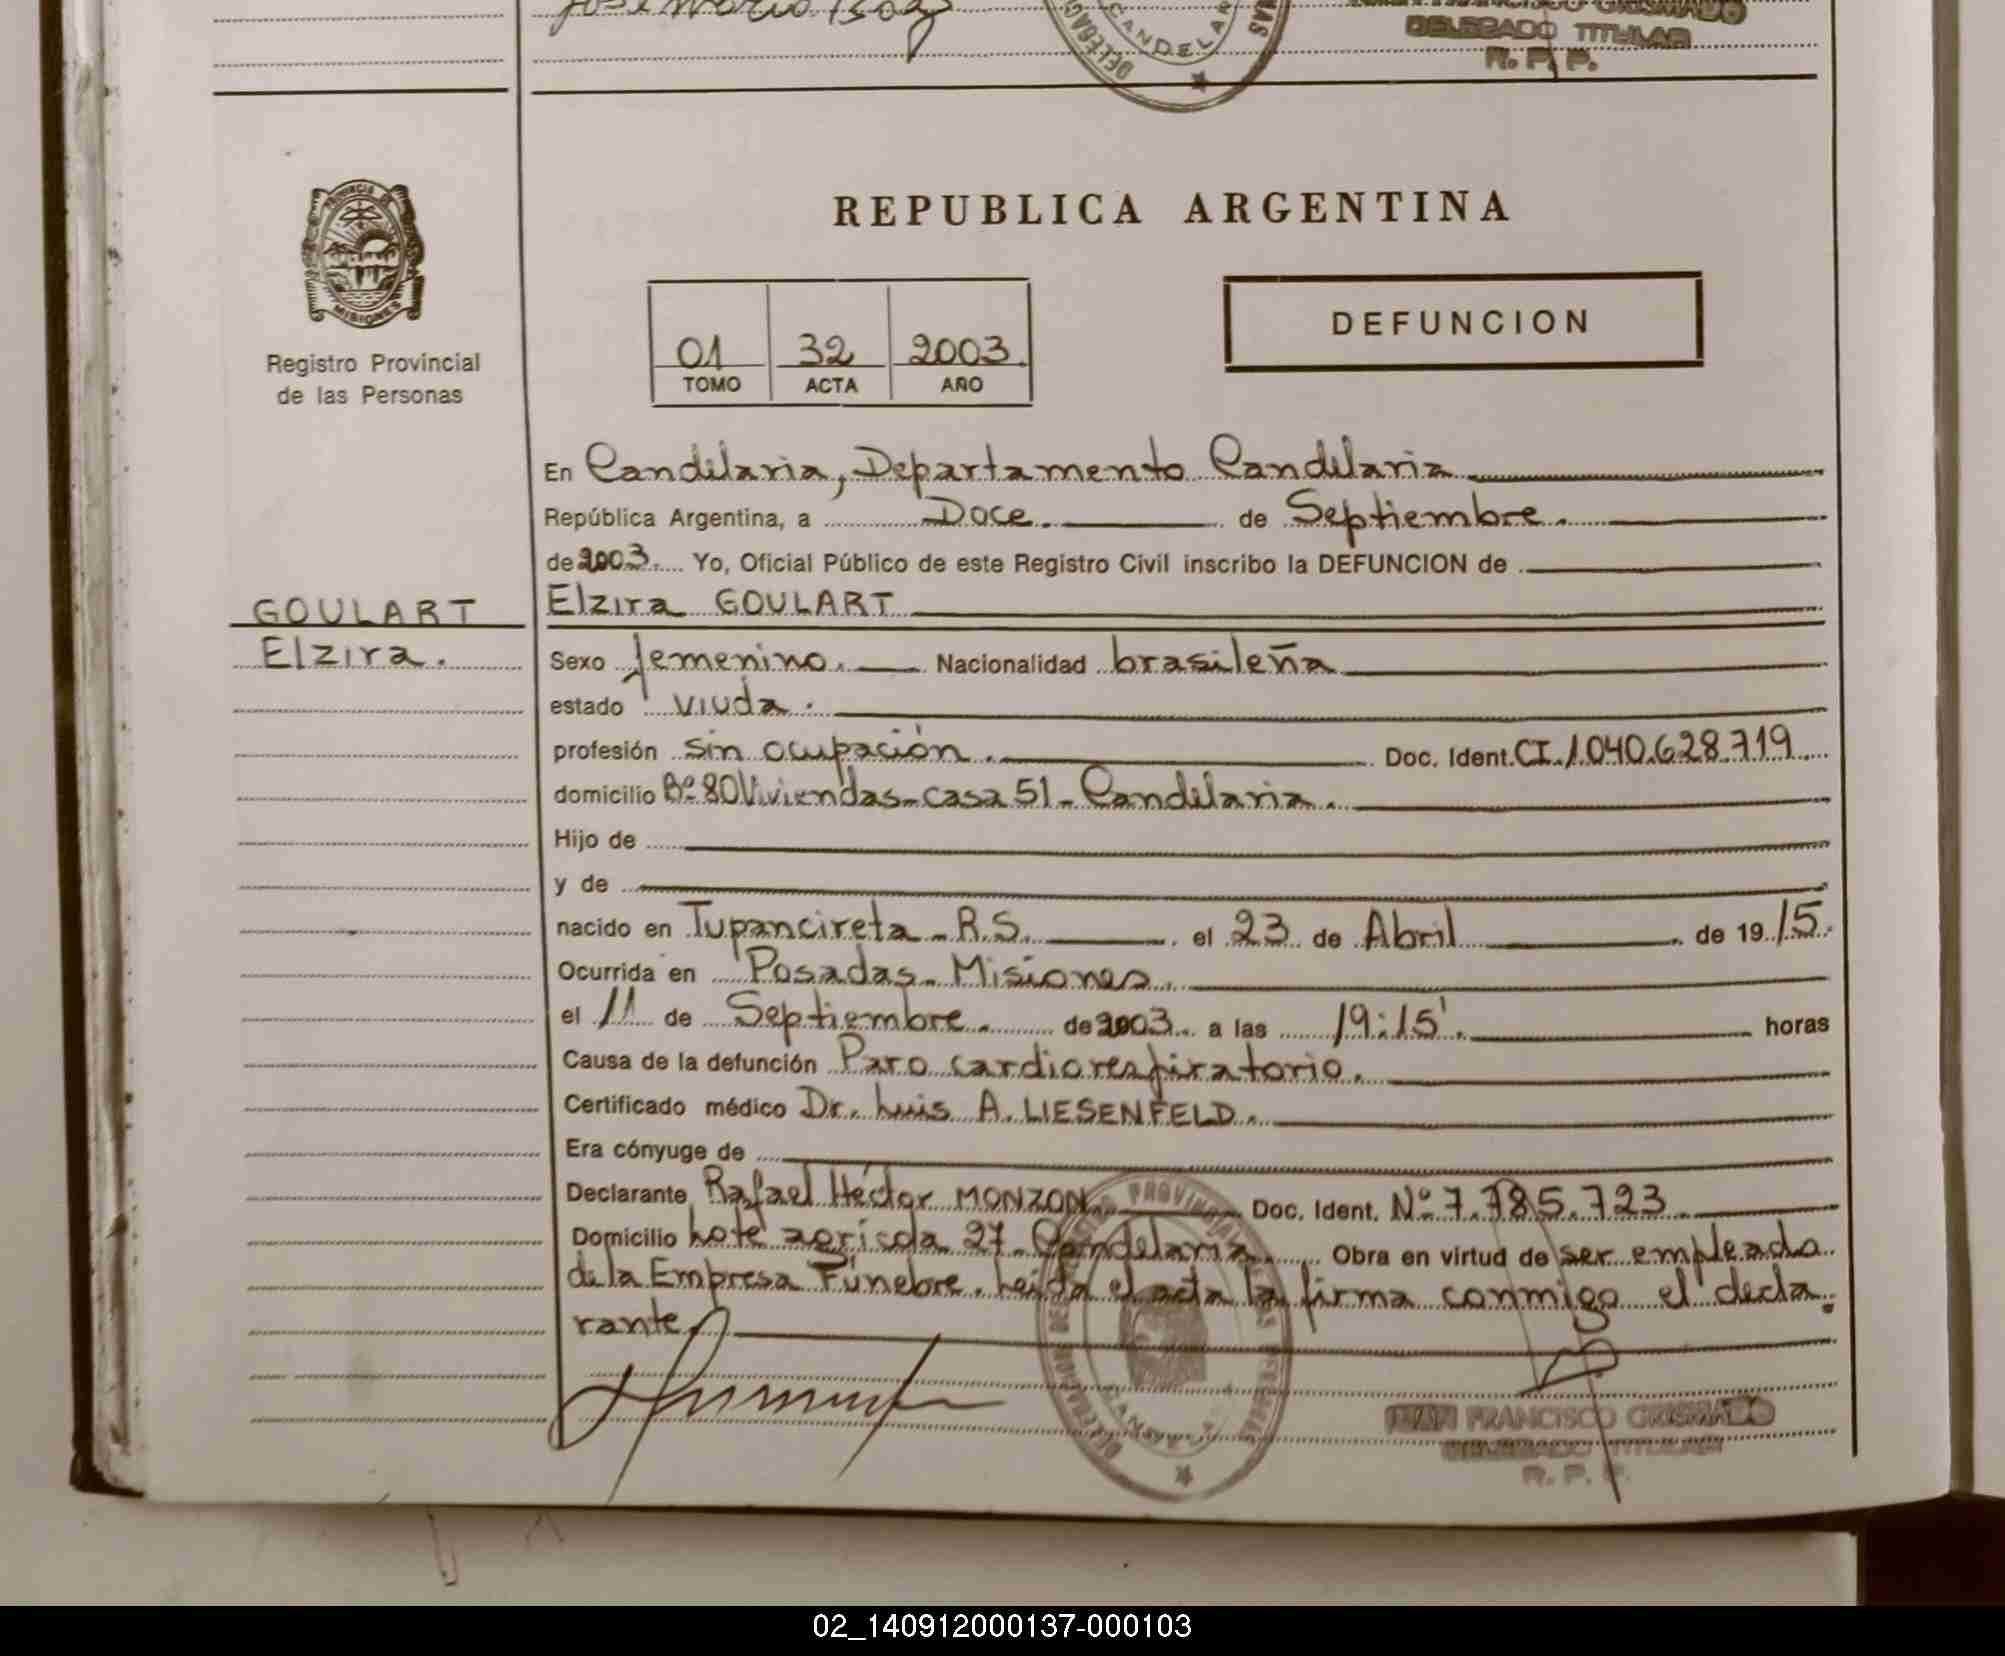 José Mario
DELEGAC
CANDELAR
NAS
DELEGADO TITULAR
R. P. P.
PROVINCIA DE
MISIONES
Registro Provincial
de las Personas
REPUBLICA ARGENTINA
01 32 2003.
TOMO ACTA AÑO
DEFUNCION
En Candelaria, Departamento Candelaria
República Argentina, a Doce. de Septiembre.
de 2003. Yo, Oficial Público de este Registro Civil inscribo la DEFUNCION de
GOULART
Elzira.
Elzira GOULART
Sexo femenino. Nacionalidad brasileña
estado viuda.
profesión sin ocupación. Doc. Ident. CI. 1.040.628.719.
domicilio Bº 80 Viviendas - casa 51 - Candelaria.
Hijo de
y de
nacido en Tupancireta - R.S. el 23 de Abril de 19 15.
Ocurrida en Posadas - Misiones.
el 11 de Septiembre. de 2003. a las 19:15'. horas
Causa de la defunción Paro cardiorespiratorio.
Certificado médico Dr. Luis A. LIESENFELD.
Era cónyuge de
Declarante Rafael Héctor MONZON. Doc. Ident. Nº 7.785.723
Domicilio Lote agrícola 27 - Candelaria. Obra en virtud de ser empleado
de la Empresa Fúnebre. Leída el acta la firma conmigo el decla
rante.
JUAN FRANCISCO GRISMADO
DELEGADO TITULAR
R. P. P.
02_140912000137-000103